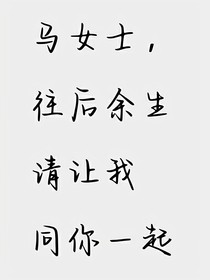 马女士，
往后余生
请让我
同你一起